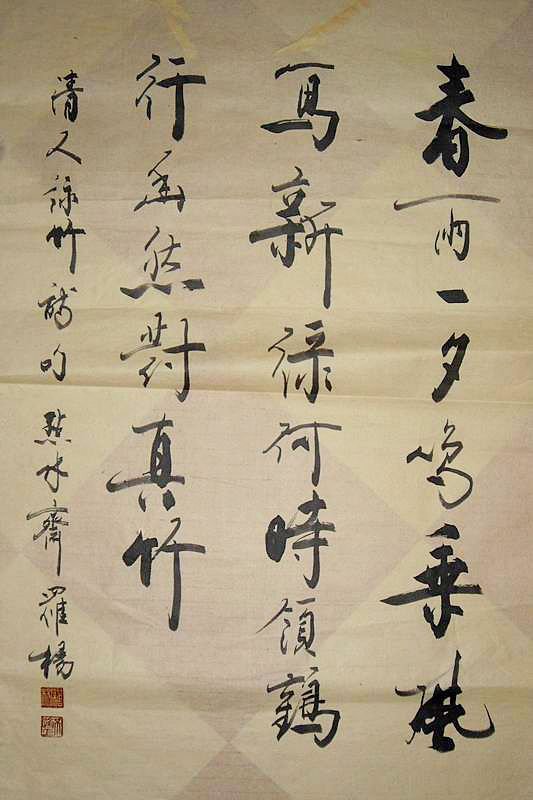 春雨一夕鳴乘興
寫新綠何時領鶴
行然對真竹
清人詠竹詩句 點水齋 羅楊